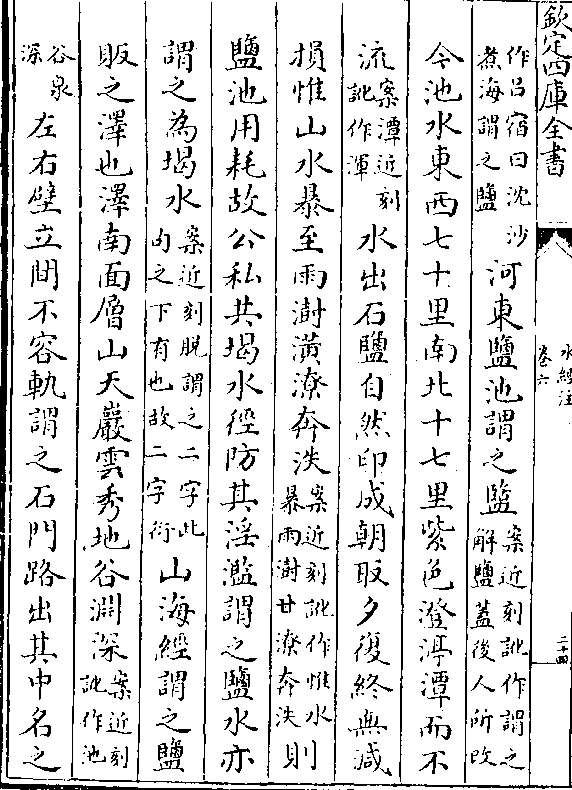 欽定四庫全書
水經注
卷六
二十四
作呂宿曰沈沙煮海謂之鹽河東鹽池謂之盬案近刻訛作謂之解鹽蓋後人所改
今池水東西七十里南北十七里紫色澄渟潭而不
流案潭近刻訛作渾水出石鹽自然印成朝取夕復終無減
損惟山水暴至雨澍潢潦奔泆案近刻訛作惟水暴雨澍甘潦奔泆則
鹽池用耗故公私共堨水徑防其淫濫謂之鹽水亦
謂之為堨水案近刻脫謂之二字此句之下有也故二字衍山海經謂之鹽
販之澤也澤南面層山天巖雲秀地谷淵深案近刻訛作池
谷泉深左右壁立間不容軌謂之石門路出其中名之